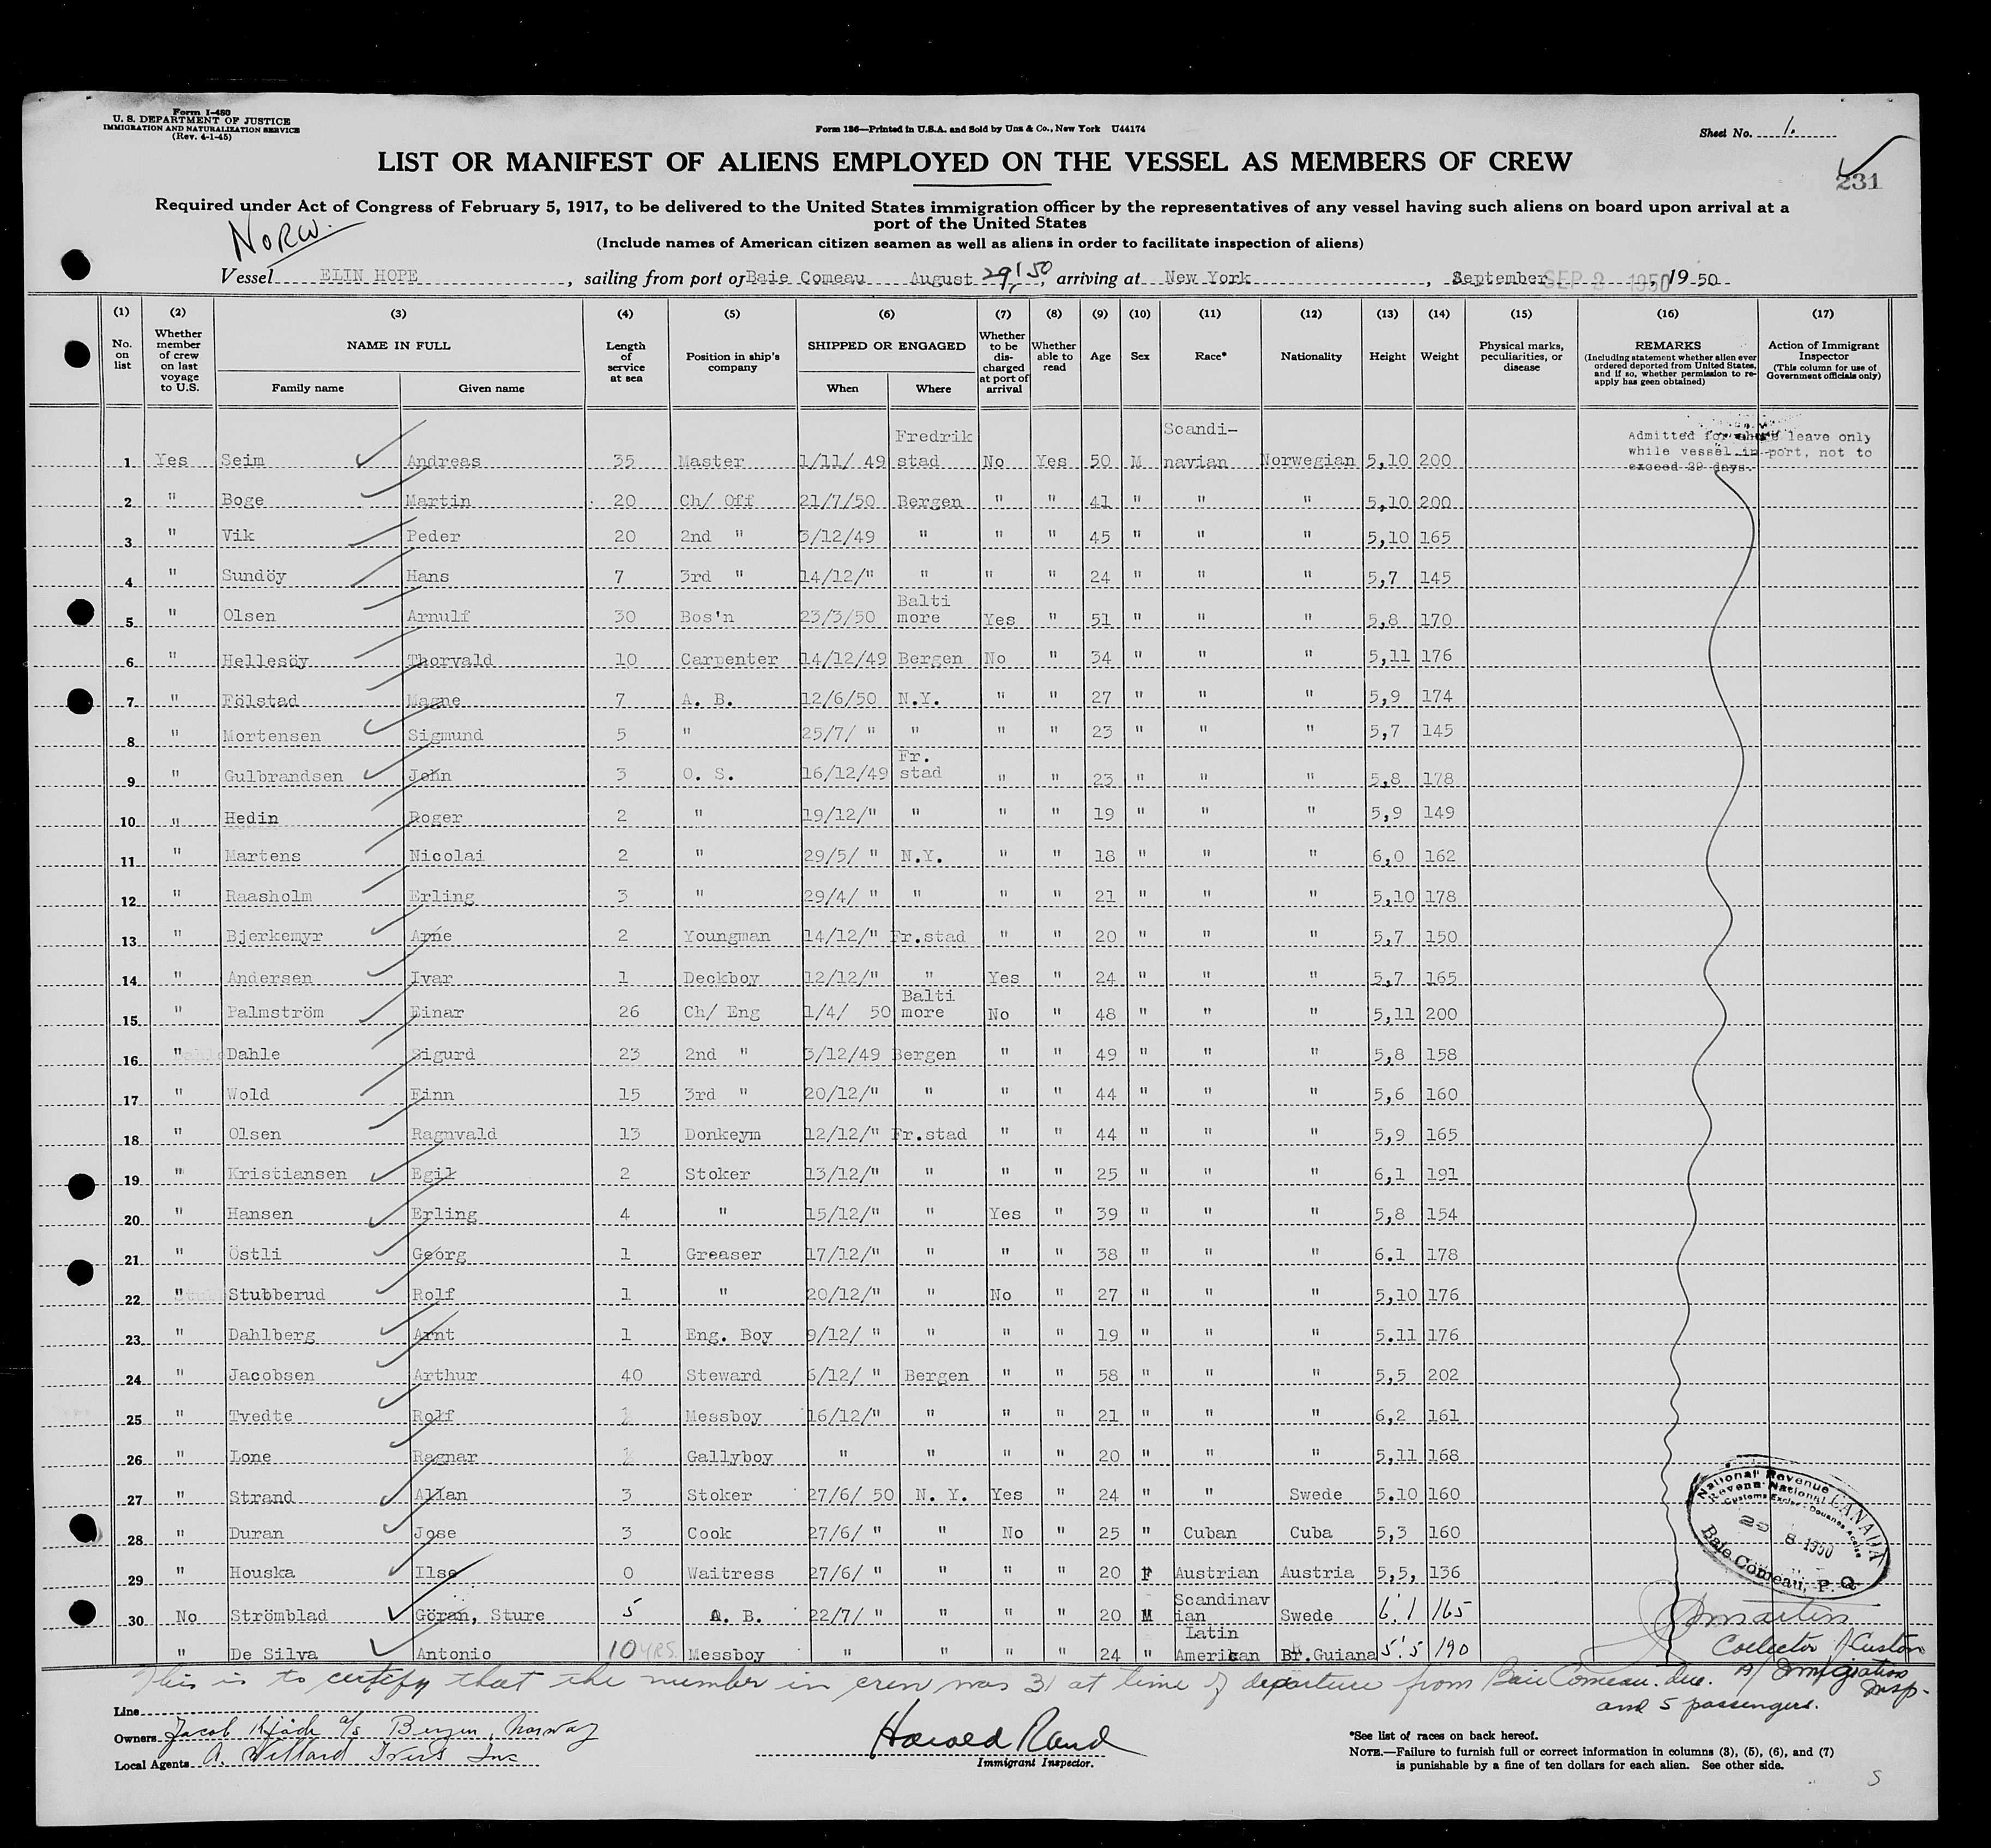 Form I-480
U. S. DEPARTMENT OF JUSTICE
IMMIGRATION AND NATURALIZATION SERVICE
(Rev. 4-1-45)
Form 136—Printed in U.S.A. and Sold by Unz & Co., New York U44174
Sheet No. 1.
LIST OR MANIFEST OF ALIENS EMPLOYED ON THE VESSEL AS MEMBERS OF CREW
231
Required under Act of Congress of February 5, 1917, to be delivered to the United States immigration officer by the representatives of any vessel having such aliens on board upon arrival at a
port of the United States
NORW.
(Include names of American citizen seamen as well as aliens in order to facilitate inspection of aliens)
Vessel ELIN HOPE, sailing from port of Baie Comeau August 29, '50, arriving at New York, September SEP 2 1950, 19 50
(1) (2) (3) (4) (5) (6) (7) (8) (9) (10) (11) (12) (13) (14) (15) (16) (17)
No. on list
Whether member of crew on last voyage to U.S.
NAME IN FULL
Family name Given name
Length of service at sea
Position in ship's company
SHIPPED OR ENGAGED
When Where
Whether to be discharged at port of arrival
Whether able to read
Age
Sex
Race*
Nationality
Height
Weight
Physical marks, peculiarities, or disease
REMARKS
(Including statement whether alien ever ordered deported from United States, and if so, whether permission to re-apply has geen obtained)
Action of Immigrant Inspector
(This column for use of Government officials only)
Admitted for shore leave only
while vessel in port, not to
exceed 29 days.
1 Yes Seim Andreas 35 Master 1/11/ 49 Fredrik stad No Yes 50 M Scandi- navian Norwegian 5,10 200
2 " Boge Martin 20 Ch/ Off 21/7/50 Bergen " " 41 " " " 5,10 200
3 " Vik Peder 20 2nd " 3/12/49 " " " 45 " " " 5,10 165
4 " Sundöy Hans 7 3rd " 14/12/" " " " 24 " " " 5,7 145
5 " Olsen Arnulf 30 Bos'n 23/3/50 Balti more Yes " 51 " " " 5,8 170
6 " Hellesöy Thorvald 10 Carpenter 14/12/49 Bergen No " 34 " " " 5,11 176
7 " Fölstad Magne 7 A. B. 12/6/50 N.Y. " " 27 " " " 5,9 174
8 " Mortensen Sigmund 5 " 25/7/ " " " " 23 " " " 5,7 145
9 " Gulbrandsen John 3 O. S. 16/12/49 Fr. stad " " 23 " " " 5,8 178
10 " Hedin Roger 2 " 19/12/" " " " 19 " " " 5,9 149
11 " Martens Nicolai 2 " 29/5/ " N.Y. " " 18 " " " 6,0 162
12 " Raasholm Erling 3 " 29/4/ " " " " 21 " " " 5,10 178
13 " Bjerkemyr Arne 2 Youngman 14/12/" Fr.stad " " 20 " " " 5,7 150
14 " Andersen Ivar 1 Deckboy 12/12/" " Yes " 24 " " " 5,7 165
15 " Palmström Einar 26 Ch/ Eng 1/4/ 50 Balti more No " 48 " " " 5,11 200
16 " Dahle Sigurd 23 2nd " 3/12/49 Bergen " " 49 " " " 5,8 158
17 " Wold Finn 15 3rd " 20/12/" " " " 44 " " " 5,6 160
18 " Olsen Ragnvald 13 Donkeym 12/12/" Fr.stad " " 44 " " " 5,9 165
19 " Kristiansen Egil 2 Stoker 13/12/" " " " 25 " " " 6,1 191
20 " Hansen Erling 4 " 15/12/" " Yes " 39 " " " 5,8 154
21 " Östli Georg 1 Greaser 17/12/" " " " 38 " " " 6.1 178
22 " Stubberud Rolf 1 " 20/12/" " No " 27 " " " 5,10 176
23 " Dahlberg Arnt 1 Eng. Boy 9/12/ " " " " 19 " " " 5.11 176
24 " Jacobsen Arthur 40 Steward 6/12/ " Bergen " " 58 " " " 5,5 202
25 " Tvedte Rolf Messboy 16/12/" " " " 21 " " " 6,2 161
26 " Lone Ragnar Gallyboy " " " " 20 " " " 5,11 168
27 " Strand Allan 3 Stoker 27/6/ 50 N. Y. Yes " 24 " " Swede 5.10 160
28 " Duran Jose 3 Cook 27/6/ " " No " 25 " Cuban Cuba 5,3 160
29 " Houska Ilse 0 Waitress 27/6/ " " " " 20 F Austrian Austria 5,5, 136
30 No Strömblad Göran, Sture 5 A. B. 22/7/ " " " " 20 M Scandinav ian Swede 6'.1 165
" De Silva Antonio 10 YRS. Messboy " " " " 24 " Latin American Br.Guiana 5'.5 190
National Revenue
Revenu National
Customs Excise - Douanes Accise
CANADA
29 8 1950
Baie Comeau, P. Q.
Martin
Collector of Customs
Immigration Insp.
This is to certify that the number in crew was 31 at time of departure from Baie Comeau. Que.
and 5 passengers.
Line
Owners Jacob Kjöde a/s Bergen, Norway
Local Agents A. Willard Ivers Inc
Harold Rand
Immigrant Inspector.
*See list of races on back hereof.
NOTE.—Failure to furnish full or correct information in columns (3), (5), (6), and (7)
is punishable by a fine of ten dollars for each alien. See other side.
S